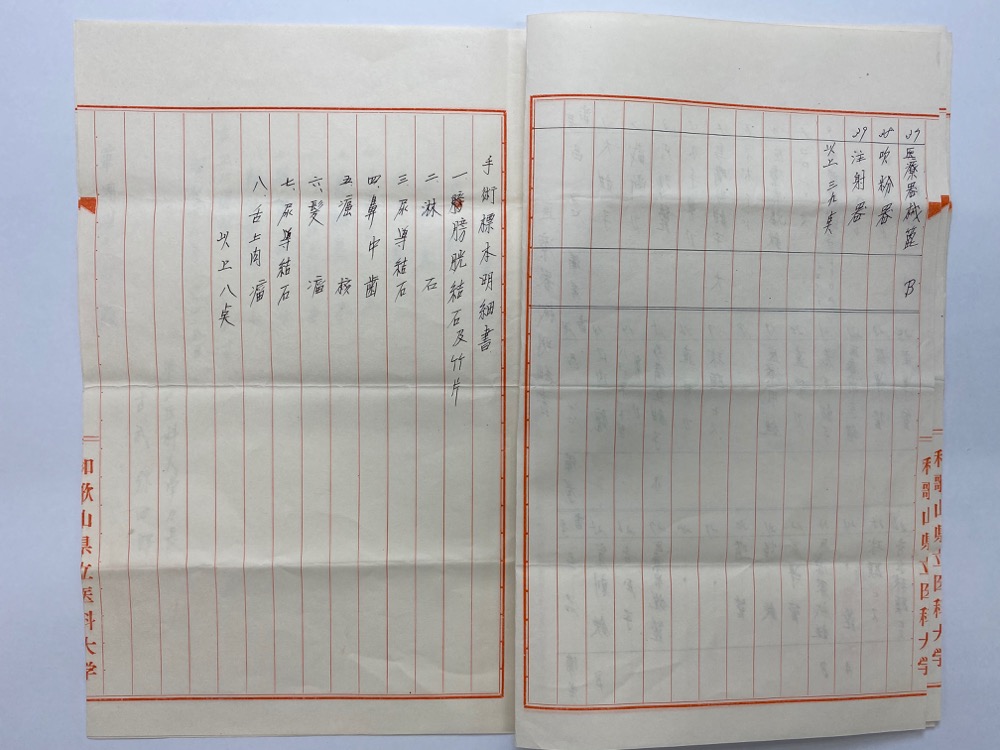 37 医療器械筐 B
38 吹粉器
39 注射器
以上 三九点
和歌山県立医科大学
和歌山県立医科大学
手術標本明細書
一、膀胱結石及竹片
二、淋石
三、尿導結石
四、鼻中歯
五、瘤核
六、髪瘤
七、尿導結石
八、舌上肉瘤
以上八点
和歌山県立医科大学